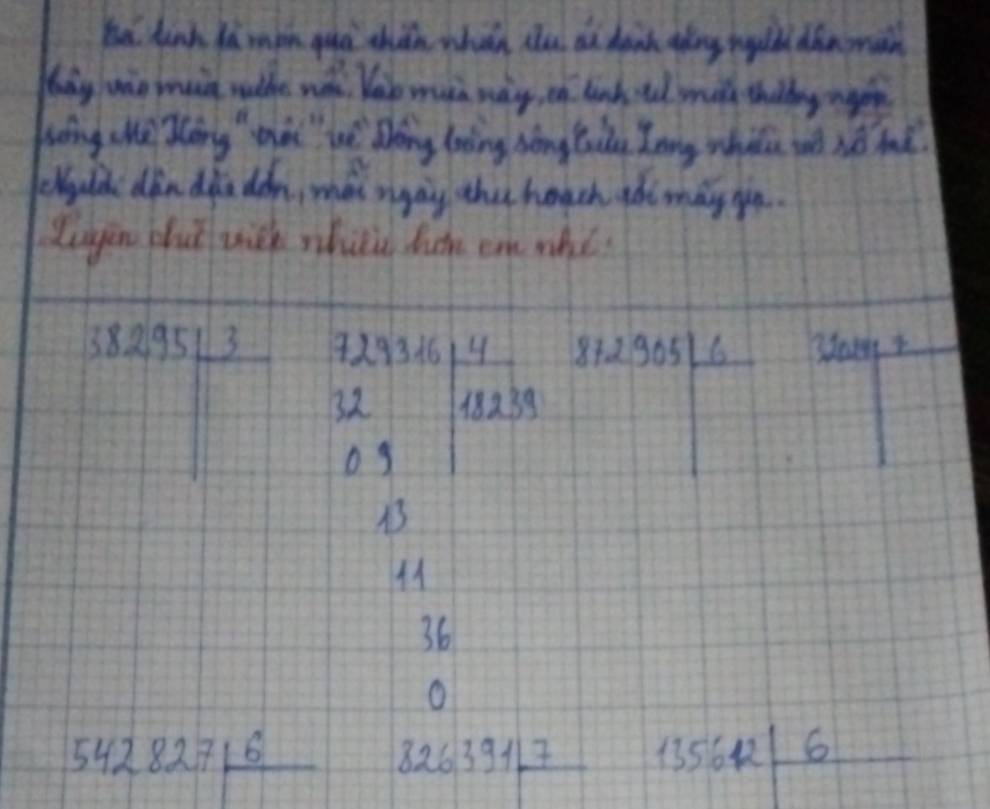 Cá linh là món quà thiên nhiên ưu ái dành tặng người dân miền
Tây vào mùa nước nổi. Vào mùa này, cá linh từ miệt thượng nguồn
sông Mê Kông "trôi" về Đồng bằng sông Cửu Long nhiều vô số kể.
Người dân đặt dớn, mỗi ngày thu hoạch tới mấy giạ.
Luyện chữ viết nhiều hơn em nhé.
38295 3 729316 4 872905 6 7
32 18239
0 9
13
11
36
0
542827 6 826391 7 135612 6